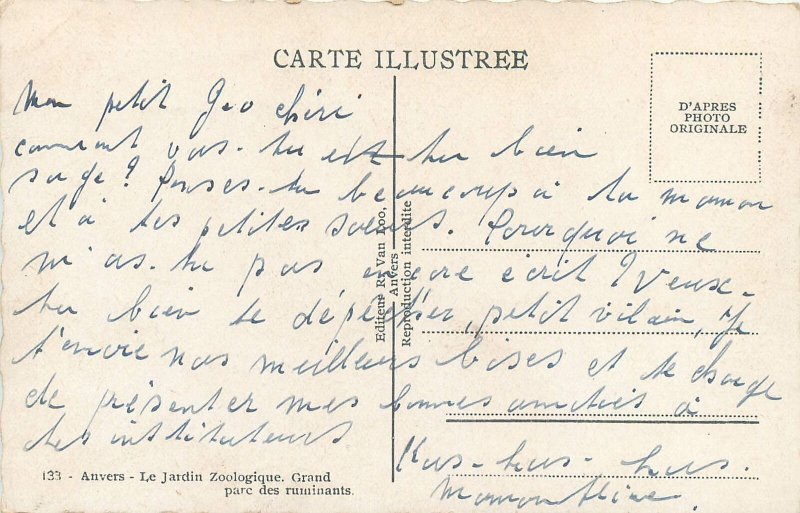 CARTE ILLUSTREE
D'APRES
PHOTO
ORIGINALE
Mon petit Géo chéri
comment vas-tu est tu bien
sage? Penses-tu beaucoup à ta maman
et à tes petites soeurs. Pourquoi ne
m'as-tu pas encore écrit? Veux-
tu bien te dépêcher, petit vilain, Je
t'envoie nos meilleurs bises et te charge
de présenter mes bonnes amitiés à
tes instituteurs
Maman
Editeur R. Van Loo,
Anvers
Reproduction interdite
133 - Anvers - Le Jardin Zoologique. Grand
parc des ruminants.